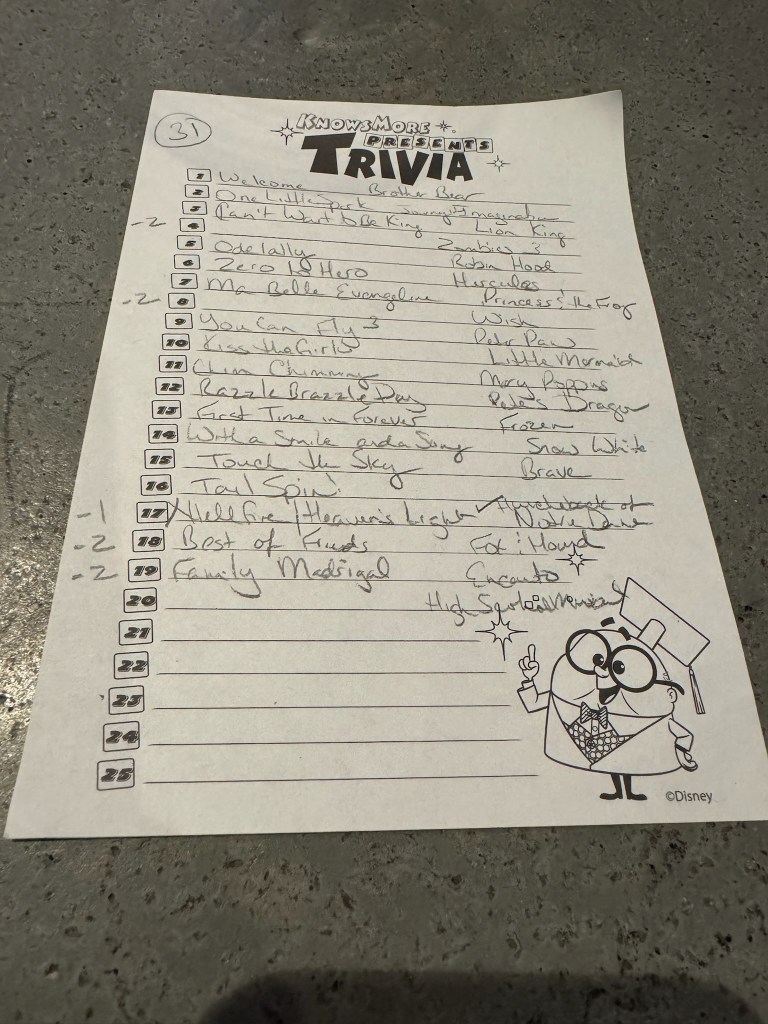 31
KNOWSMORE
PRESENTS
TRIVIA
1 Welcome Brother Bear
2 One Little Spark Journey Imagination
3 Can't Wait to Be King Lion King
-2 4 Zombies 3
5 Odelally Robin Hood
6 Zero to Hero Hercules
7 Ma Belle Evangeline Princess & the Frog
-2 8 Wish
9 You Can Fly 3 Peter Paw
10 Kiss the Girl Little Mermaid
11 Chim Chimmny Mary Poppins
12 Razzle Brazzle Day Pete's Dragon
13 First Time in Forever Frozen
14 With a Smile and a Song Snow White
15 Touch the Sky Brave
16 Tail Spin!
-1 17 Hellfire / Heaven's Light ✓ Hunchback of Notre Dame
-2 18 Best of Friends Fox & Hound
-2 19 Family Madrigal Encanto
20 High
21
22
23
24
25
©Disney